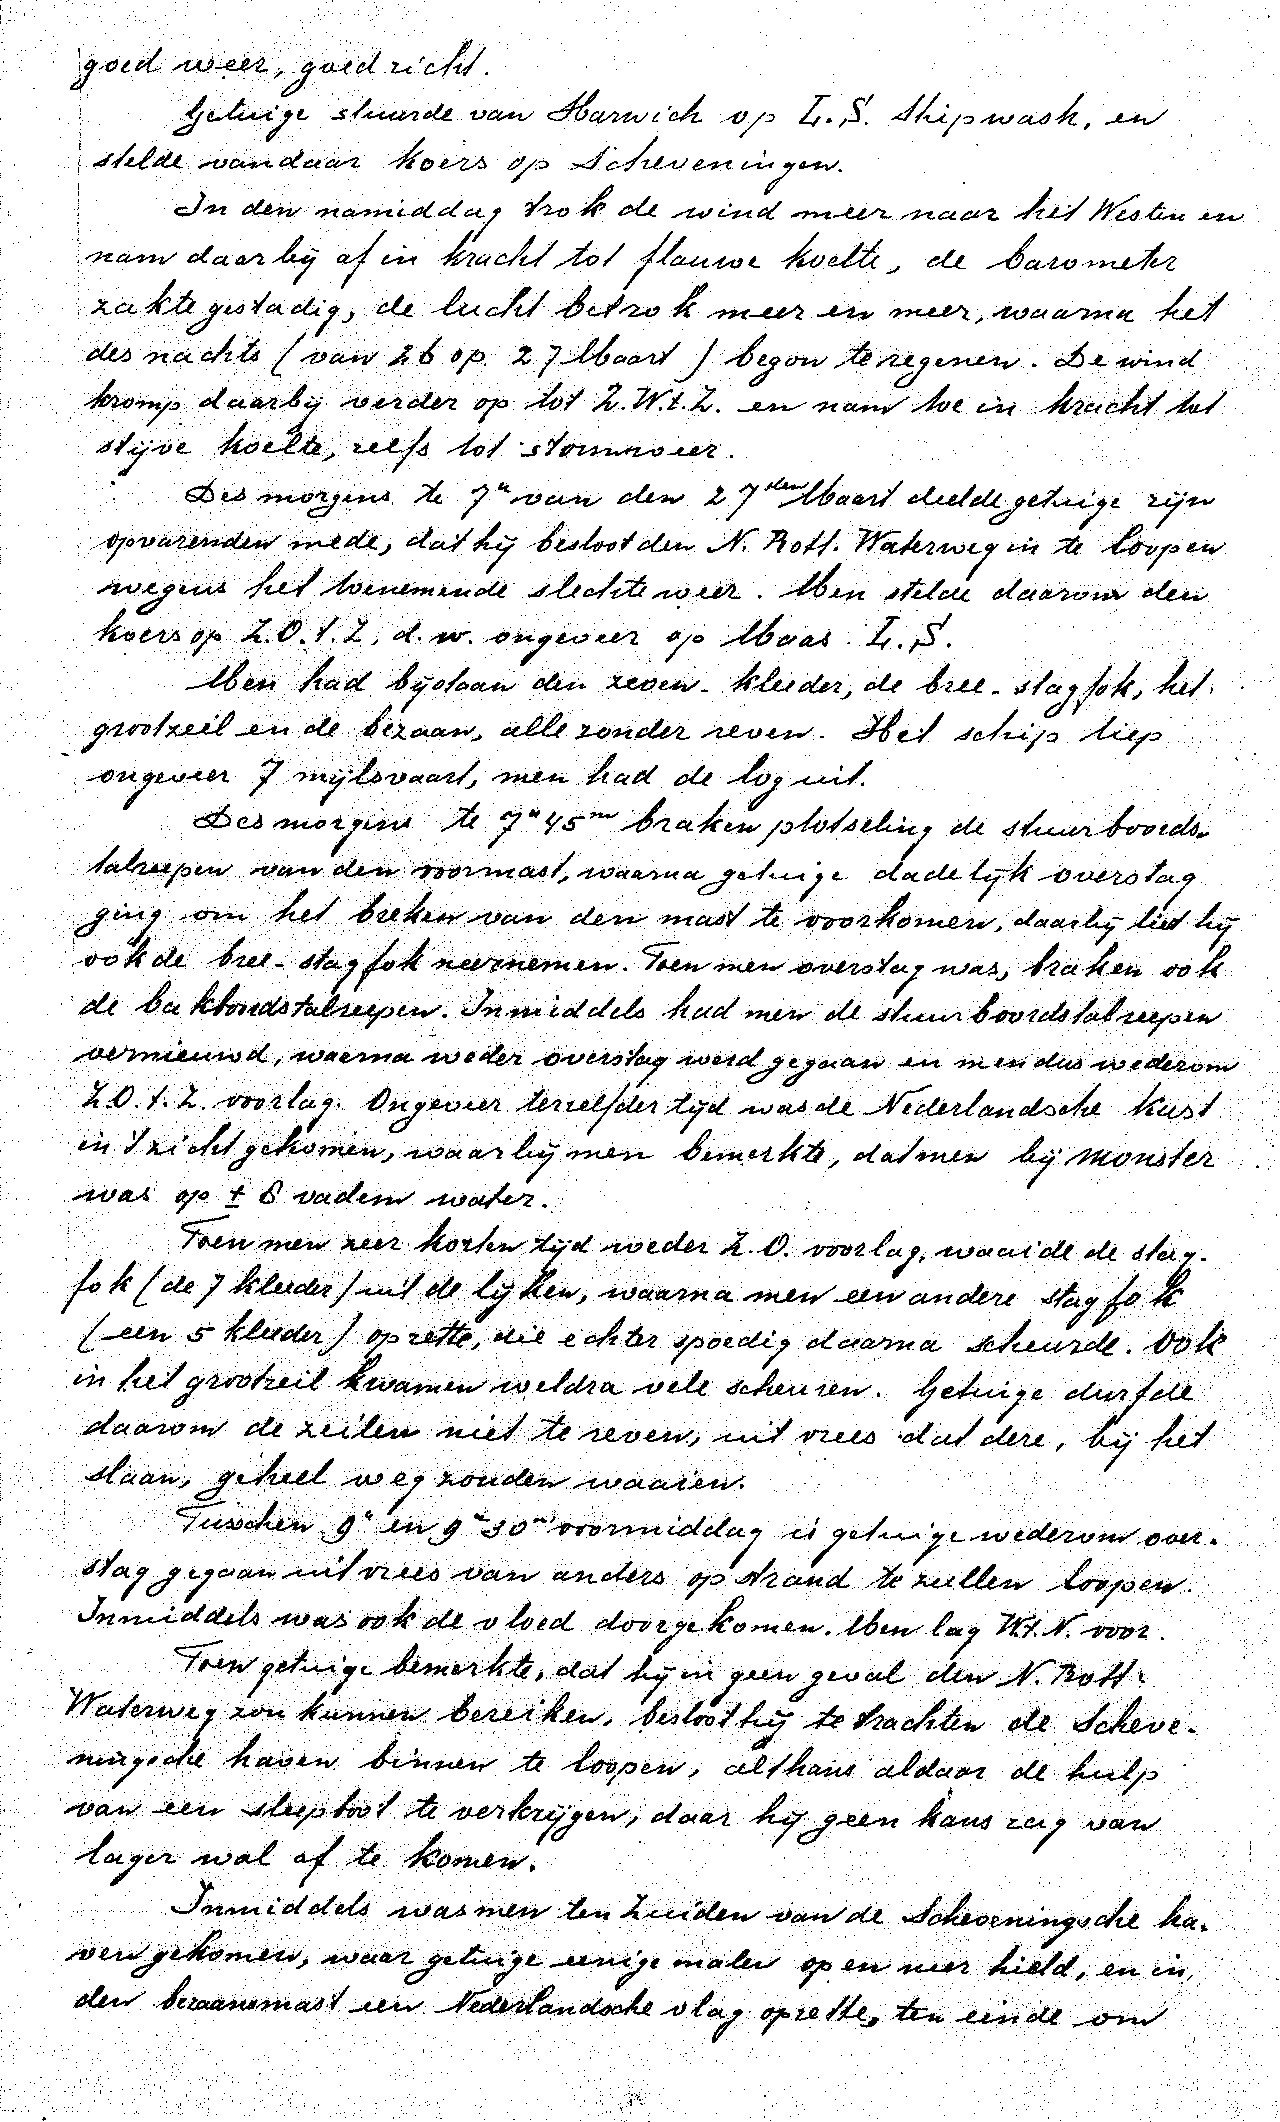 goed weer, goed zicht.
Getuige stuurde van Harwich op L.S. Shipwash, en
stelde vandaar koers op Scheveningen.
In den namiddag trok de wind meer naar het Westen en
nam daarbij af in kracht tot flauwe koelte, de barometer
zakte gestadig, de lucht betrok meer en meer, waarna het
des nachts (van 26 op 27 Maart) begon te regenen. De wind
kromp daarbij verder op tot Z.W.t.Z. en nam toe in kracht tot
stijve koelte, zelfs tot stormweer.
Des morgens te 7u van den 27sten Maart deelde getuige zijn
opvarenden mede, dat hij besloot den N. Rott. Waterweg in te loopen
wegens het toenemende slechte weer. Men stelde daarom den
koers op Z.O.t.Z, d.w. ongeveer op Maas L.S.
Men had bijstaan den zeven-kleeder, de bree-stagfok, het
grootzeil en de bezaan, alle zonder reven. Het schip liep
ongeveer 7 mijlsvaart, men had de log uit.
Des morgens te 7u 45m braken plotseling de stuurboords-
talreepen van den voormast, waarna getuige dadelijk overstag
ging om het breken van den mast te voorkomen, daarbij liet hij
ook de bree-stagfok neernemen. Toen men overstag was, braken ook
de bakboordstalreepen. Inmiddels had men de stuurboordstalreepen
vernieuwd, waarna weder overstag werd gegaan en men dus wederom
Z.O.t.Z. voorlag. Ongeveer terzelfder tijd was de Nederlandsche kust
in 't zicht gekomen, waarbij men bemerkte, dat men bij Monster
was op ± 8 vadem water.
Toen men zeer korten tijd weder Z.O. voorlag, waaide de stag-
fok (de 7 kleeder) uit de lijken, waarna men een andere stagfok
(een 5 kleeder) opzette, die echter spoedig daarna scheurde. Ook
in het grootzeil kwamen weldra vele scheuren. Getuige durfde
daarom de zeilen niet te reven, uit vrees dat deze, bij het
slaan, geheel weg zouden waaien.
Tusschen 9u en 9u 30m voormiddag is getuige wederom over-
stag gegaan uit vrees van anders op strand te zullen loopen.
Inmiddels was ook de vloed doorgekomen. Men lag W.t.N. voor.
Toen getuige bemerkte, dat hij in geen geval den N. Rott.
Waterweg zou kunnen bereiken, besloot hij te trachten de Scheve-
ningsche haven binnen te loopen, althans aldaar de hulp
van een sleepboot te verkrijgen, daar hij geen kans zag van
lager wal af te komen.
Inmiddels was men ten Zuiden van de Scheveningsche ha-
ven gekomen, waar getuige eenige malen op en neer hield, en in
den bezaansmast een Nederlandsche vlag opzette, ten einde om